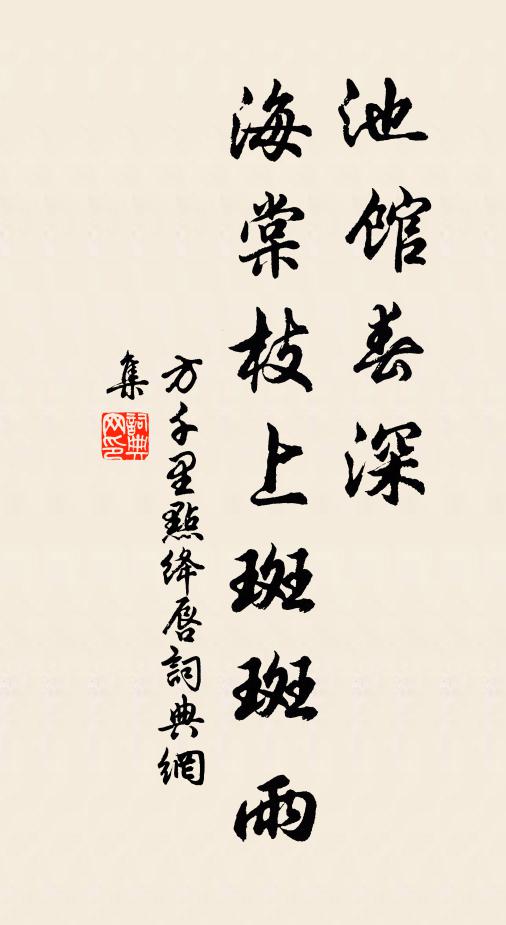 池馆春深
海棠枝上斑斑雨
方千里點绛唇詞典網
集
詞典
网印